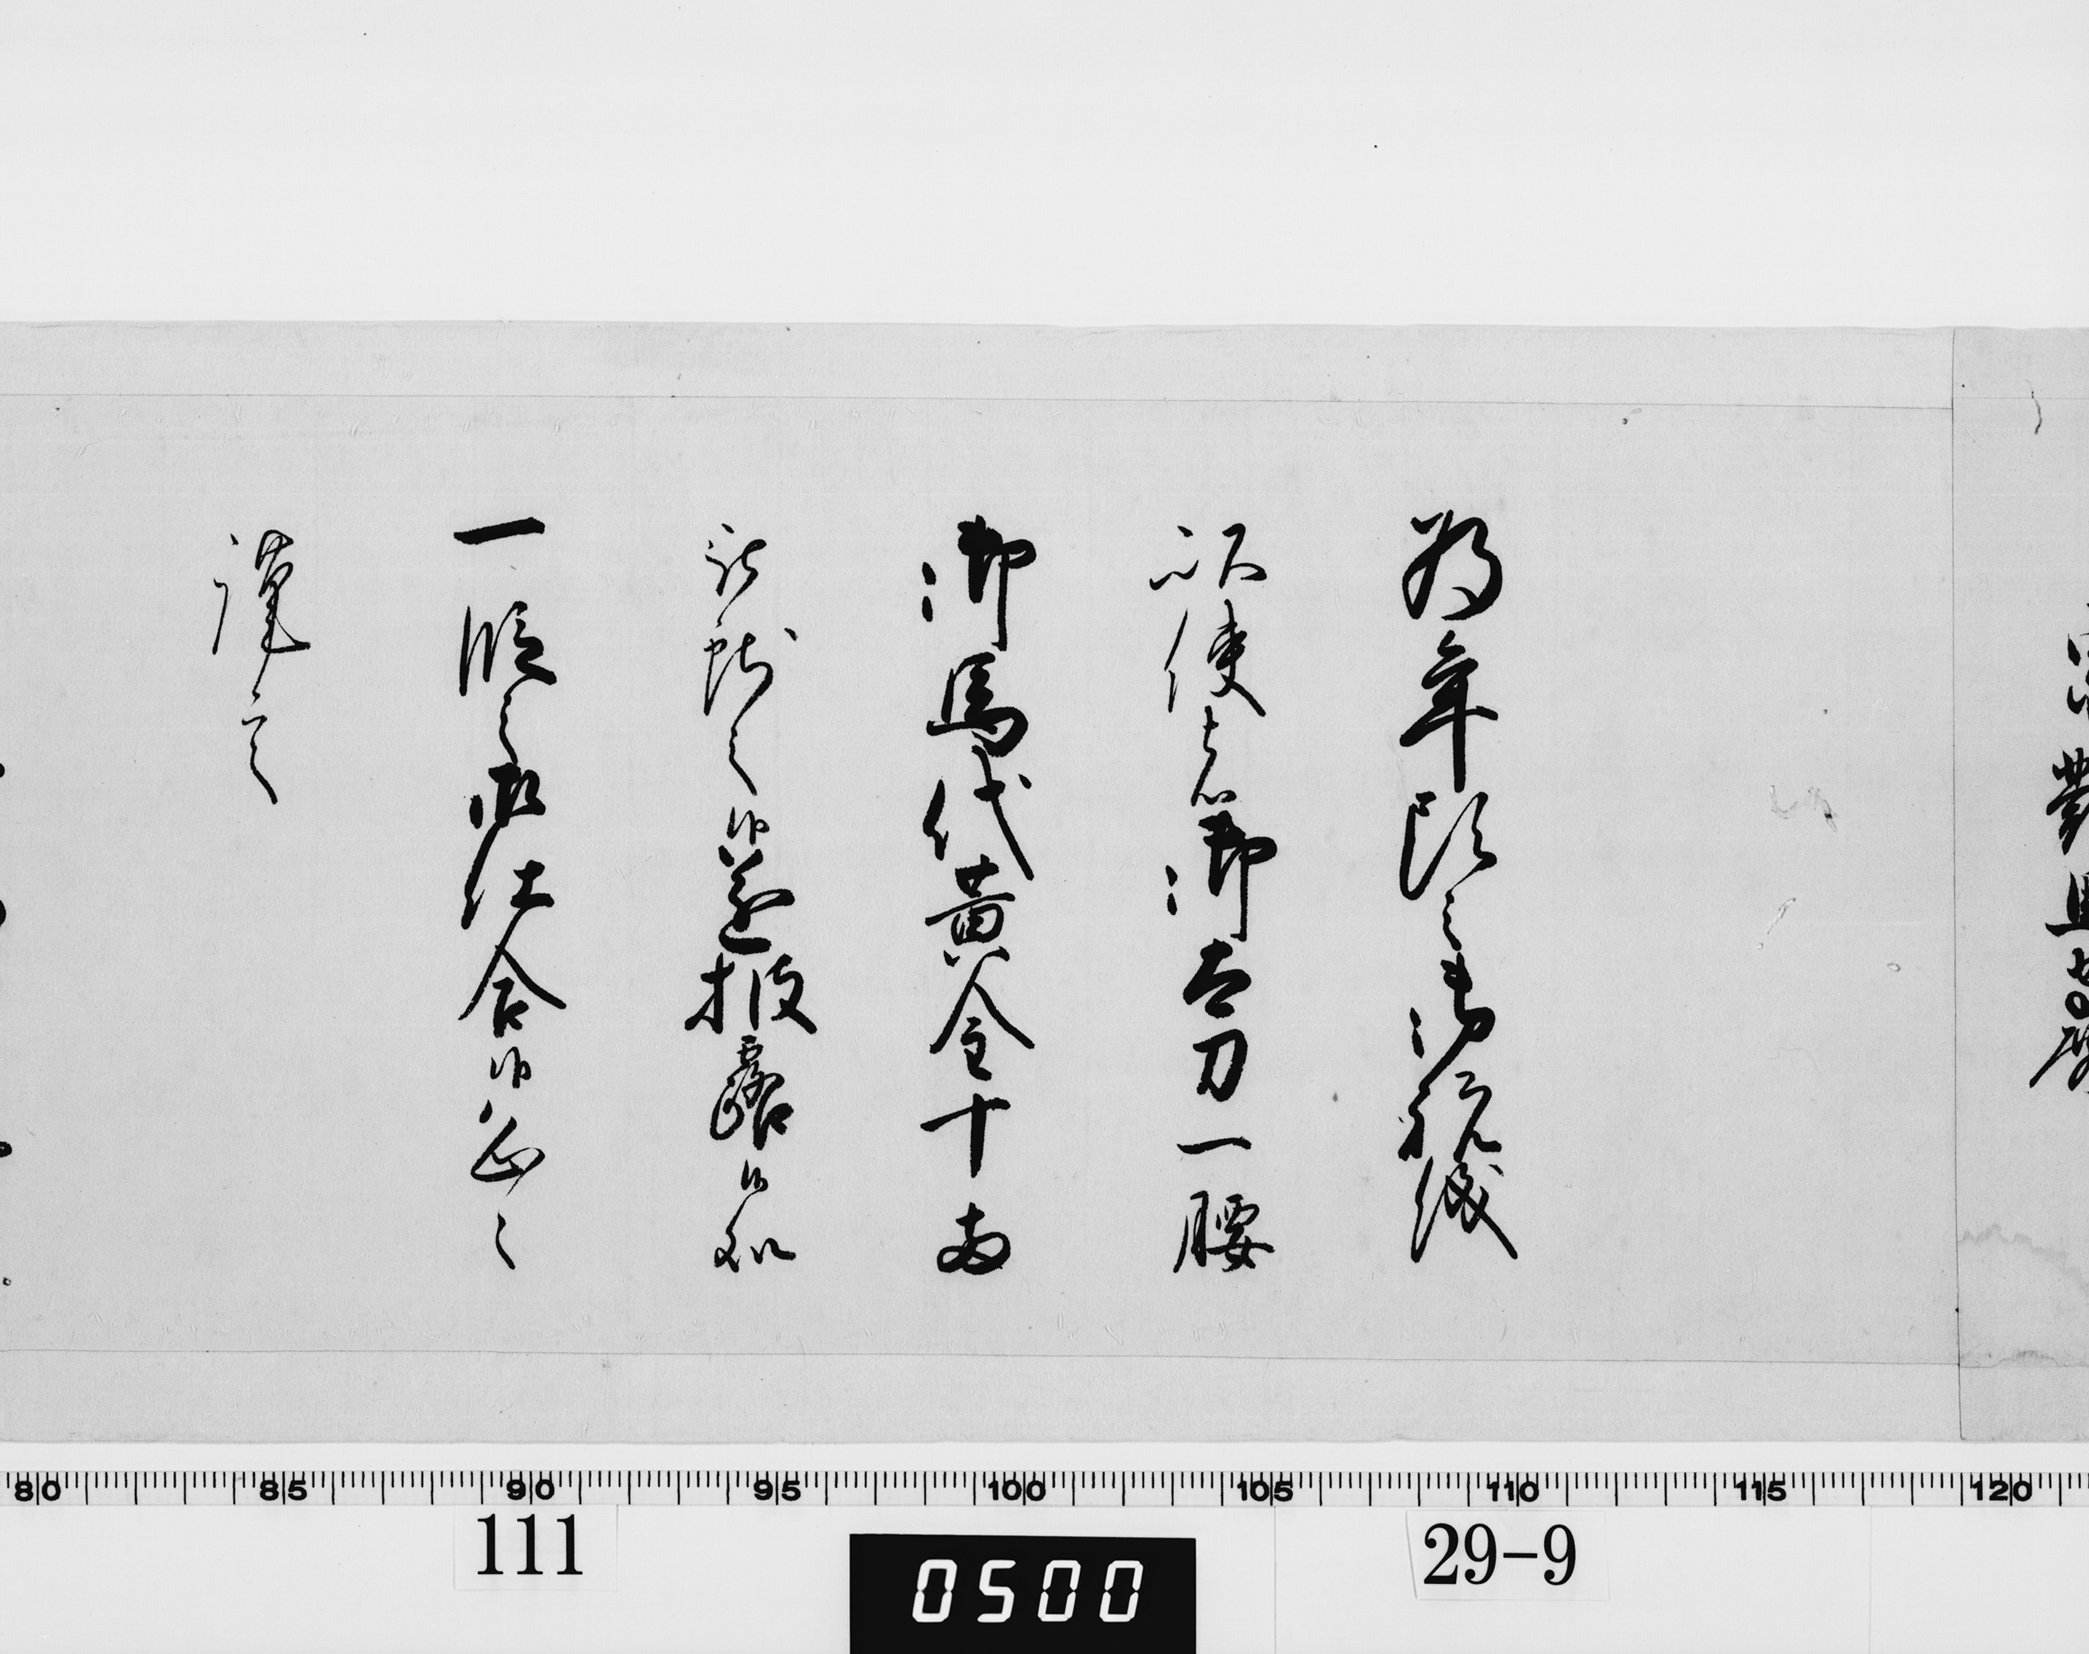 為年頭之御祝儀
以使者御太刀一腰
御馬代黄金十両
被献之候遂披露候処
一段之御仕合候恐々
謹言
80 85 90 95 100 105 110 115 120
111
0500
29-9